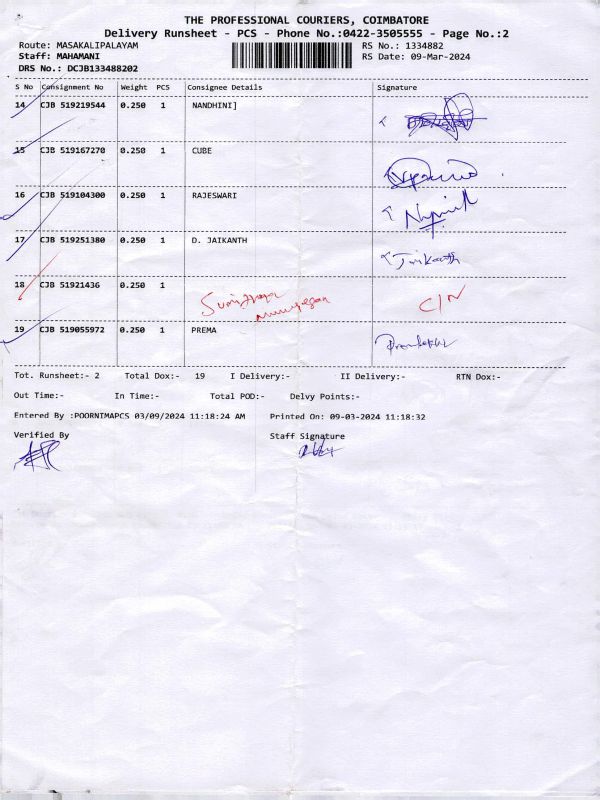 THE PROFESSIONAL COURIERS, COIMBATORE
Delivery Runsheet - PCS - Phone No.:0422-3505555 - Page No.:2
Route: MASAKALIPALAYAM RS No.: 1334882
Staff: MAHAMANI RS Date: 09-Mar-2024
DRS No.: DCJB133488202
S No Consignment No Weight PCS Consignee Details Signature
14 CJB 519219544 0.250 1 NANDHINI]
15 CJB 519167270 0.250 1 CUBE
16 CJB 519104300 0.250 1 RAJESWARI
17 CJB 519251380 0.250 1 D. JAIKANTH Jaikanth
18 CJB 51921436 0.250 1 C/N
19 CJB 519055972 0.250 1 PREMA
Tot. Runsheet:- 2 Total Dox:- 19 I Delivery:- II Delivery:- RTN Dox:-
Out Time:- In Time:- Total POD:- Delvy Points:-
Entered By :POORNIMAPCS 03/09/2024 11:18:24 AM Printed On: 09-03-2024 11:18:32
Verified By Staff Signature